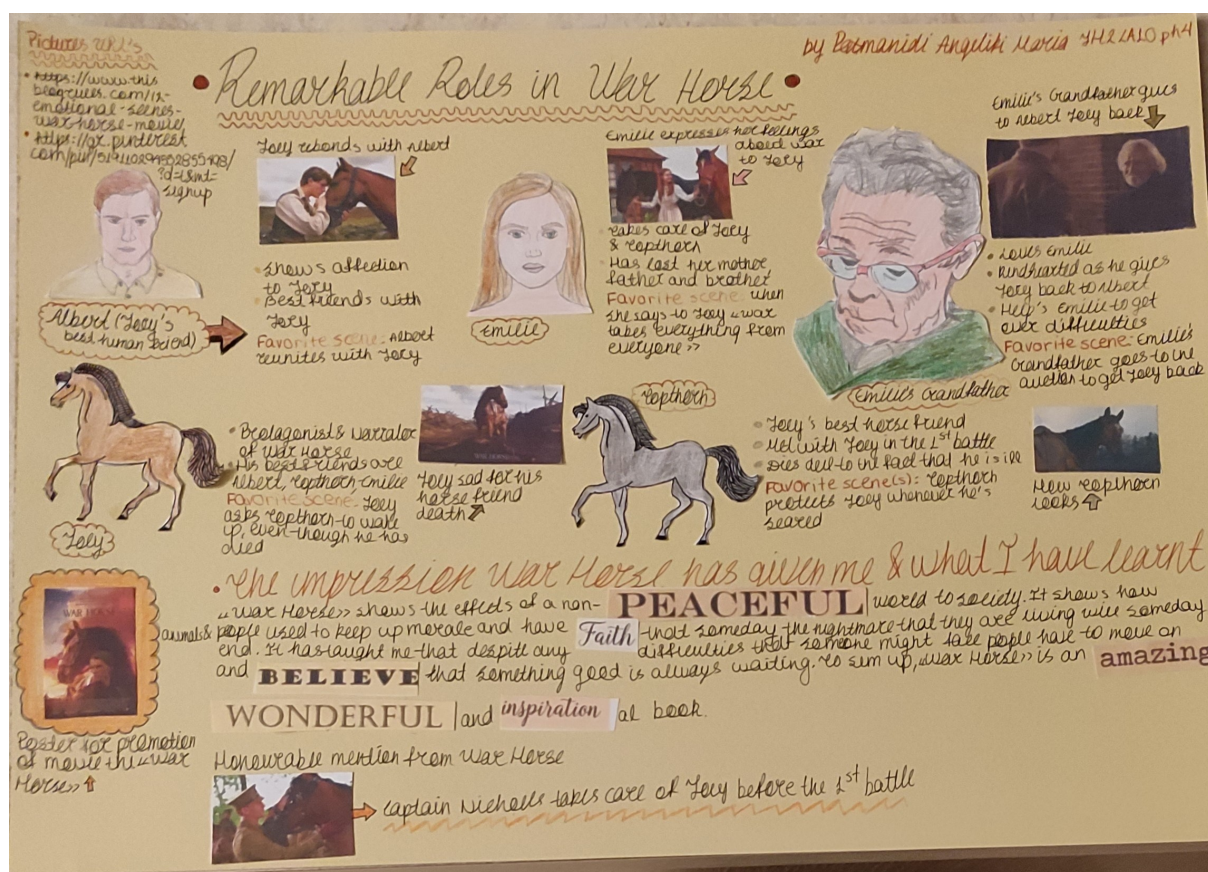 Pictures URL's
• https://www.this
blogrules.com/12-
emotional-scenes-
war-horse-movie/
• https://gr.pinterest.
com/pin/
signup
by Patmanidi Angeliki Maria
• Remarkable Roles in War Horse •
Joey rebonds with Albert
• shows affection
to Joey
• Best friends with
Joey
Favorite scene: Albert
reunites with Joey
Albert (Joey's
best human friend)
Emilie expresses her feelings
about war
to Joey
• Takes care of Joey
& Topthorn
• Has lost her mother
father and brother
Favorite scene: when
she says to Joey «war
takes everything from
everyone»
Emilie
Emilie's Grandfather gives
to Albert Joey back
• Loves Emilie
• Kindhearted as he gives
Joey back to Albert
• Help's Emilie to get
over difficulties
Favorite scene: Emilie's
Grandfather goes to the
auction to get Joey back
Emilie's Grandfather
Joey
• Protagonist & Narrator
of War Horse
• His best friends are
Albert, Topthorn-Emilie
Favorite scene: Joey
asks Topthorn to wake
up, even-though he has
died
Joey sad for his
horse friend
death
Topthorn
• Joey's best horse friend
• Met with Joey in the 1st battle
• Dies due to the fact that he is ill
Favorite scene(s): Topthorn
protects Joey whenever he's
scared
How Topthorn
looks
• The impression War Horse has given me & what I have learnt
«War Horse» shows the effects of a non- PEACEFUL world to society. It shows how
animals & people used to keep up morale and have Faith that someday the nightmare that they are living will someday
end. It has taught me that despite any difficulties that someone might face people have to move on
and BELIEVE that something good is always waiting. To sum up, «War Horse» is an amazing
WONDERFUL and inspiration al book.
WAR HORSE
Poster for promotion
of movie the «War
Horse»
Honourable mention from War Horse
Captain Nicholls takes care of Joey before the 1st battle